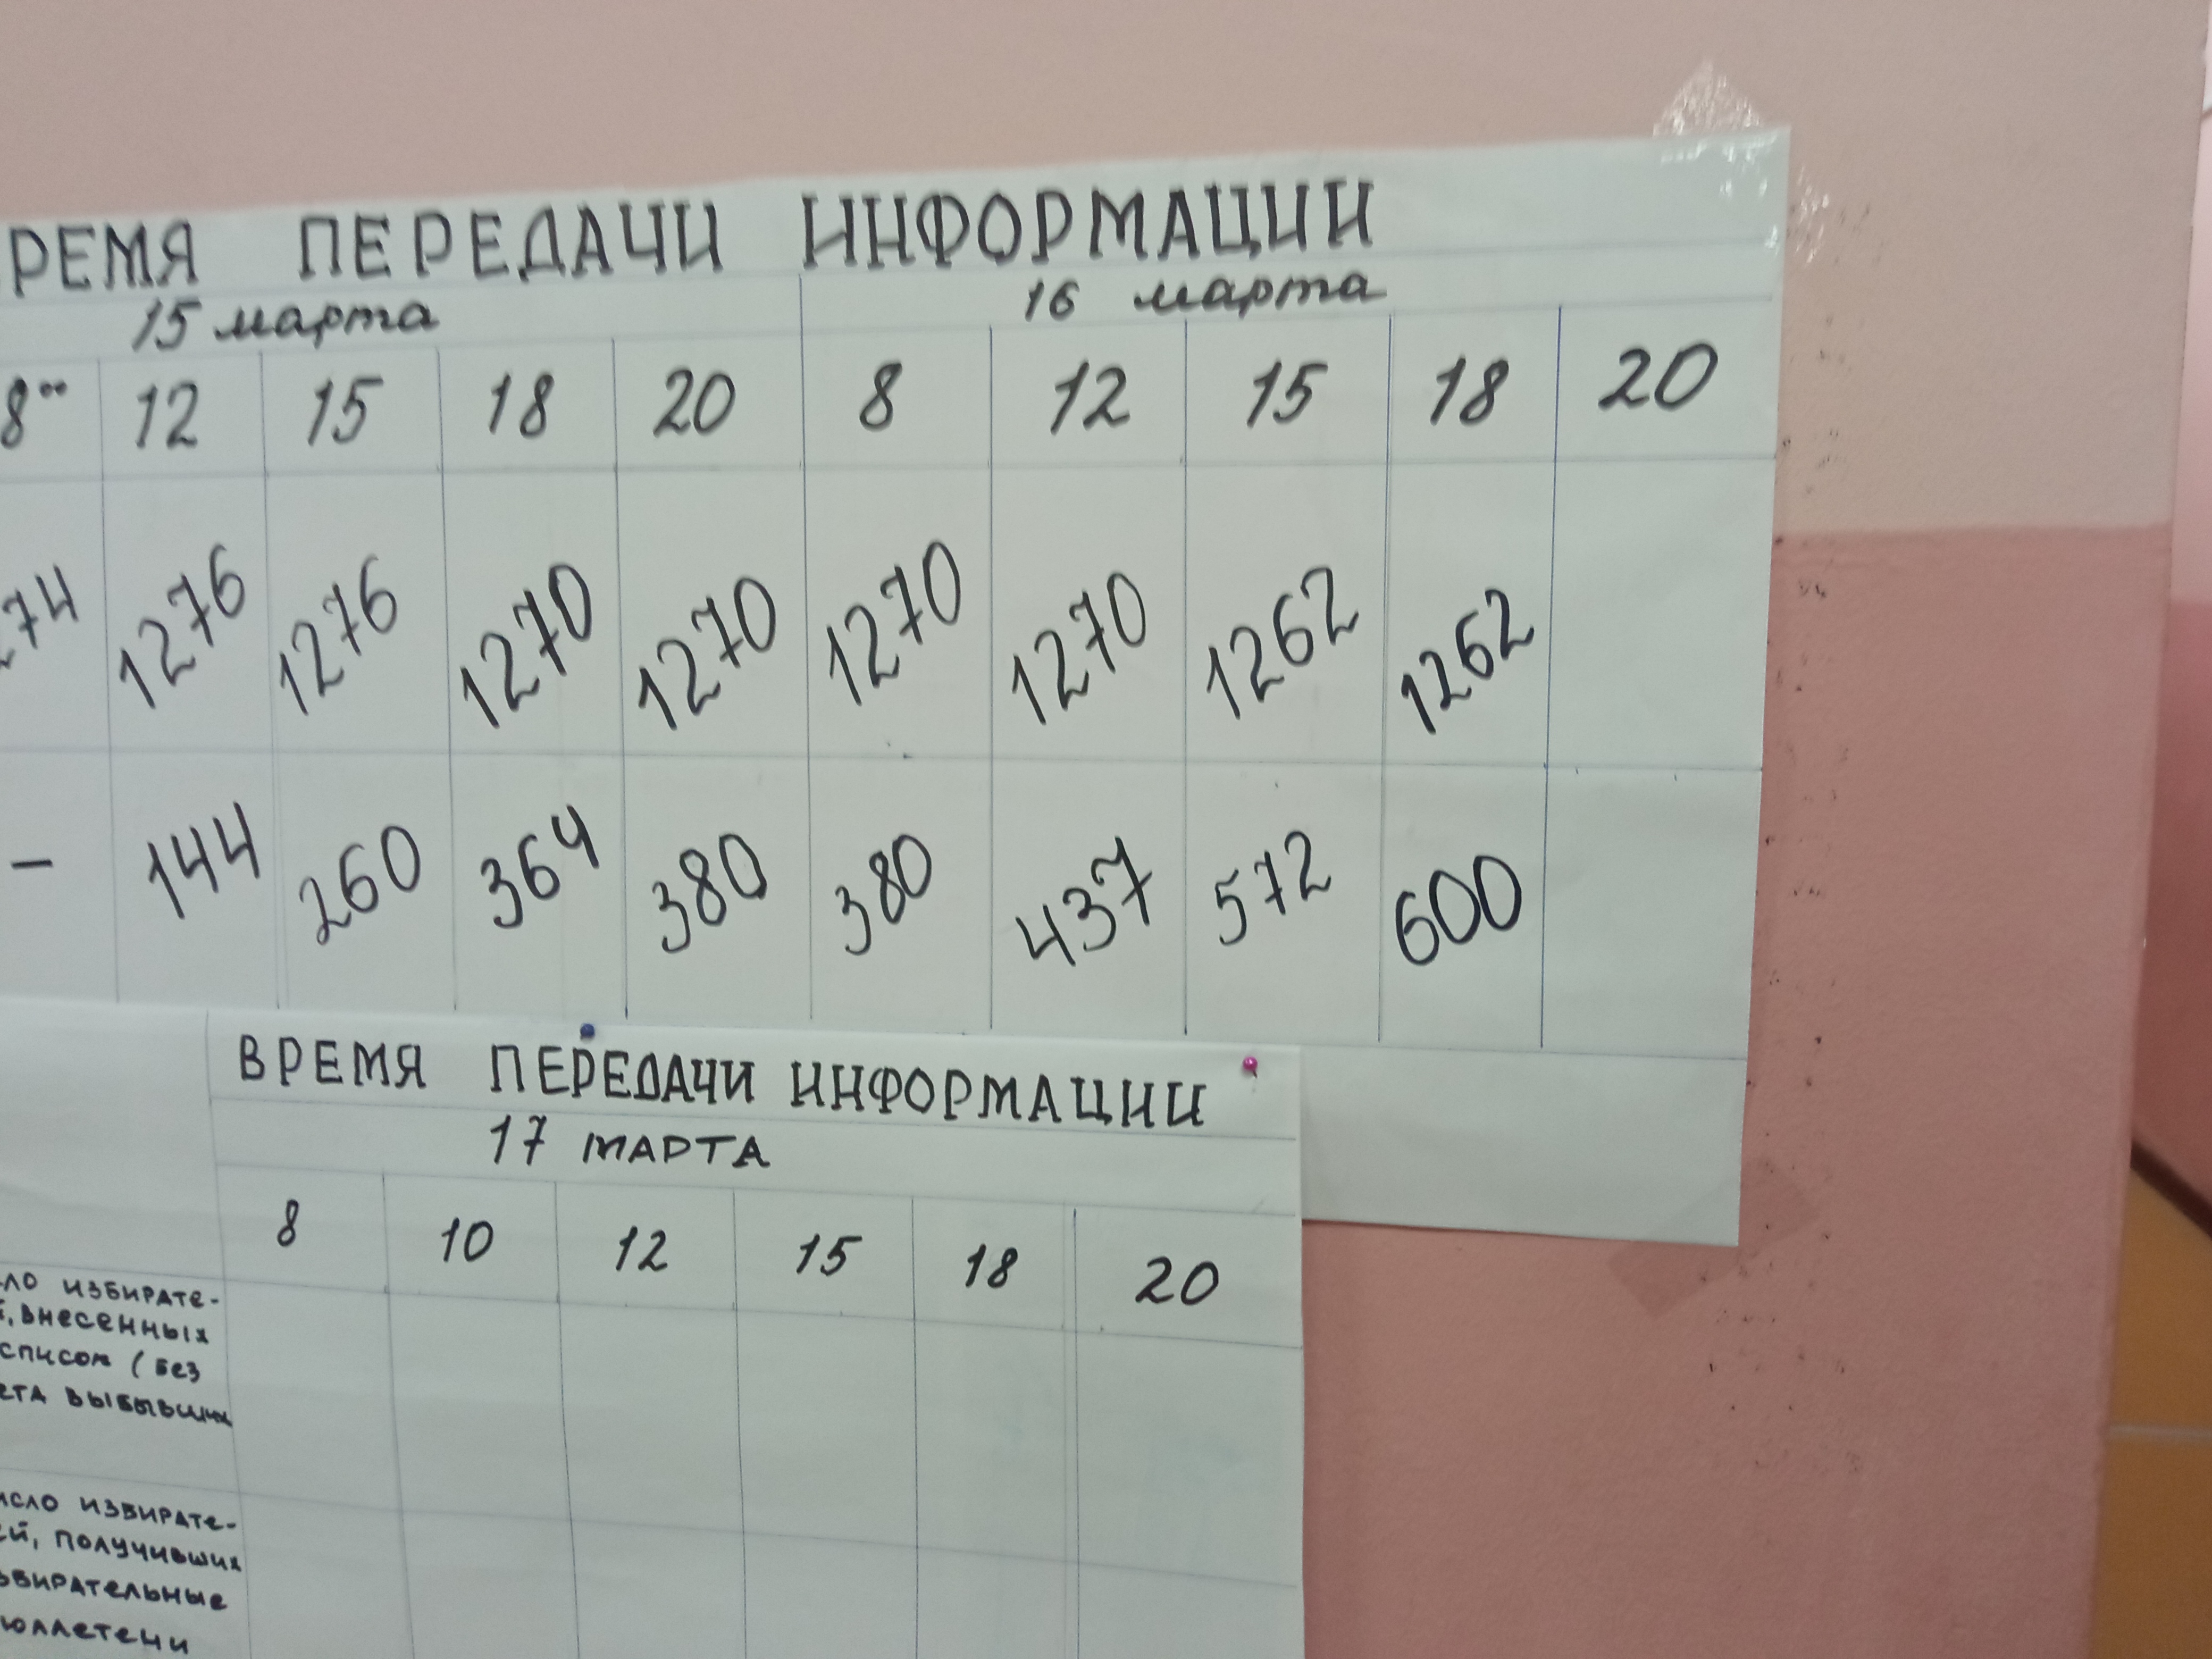 РЕМЯ ПЕРЕДАЧИ ИНФОРМАЦИИ
15 марта 16 марта
8⁰⁰ 12 15 18 20 8 12 15 18 20
274 1276 1276 1270 1270 1270 1270 1262 1262
– 144 260 364 380 380 437 572 600
ВРЕМЯ ПЕРЕДАЧИ ИНФОРМАЦИИ
17 МАРТА
8 10 12 15 18 20
ло избирате-
й, внесенных
список (без
ета выбывших
исло избирате-
ей, получивших
збирательные
юллетени